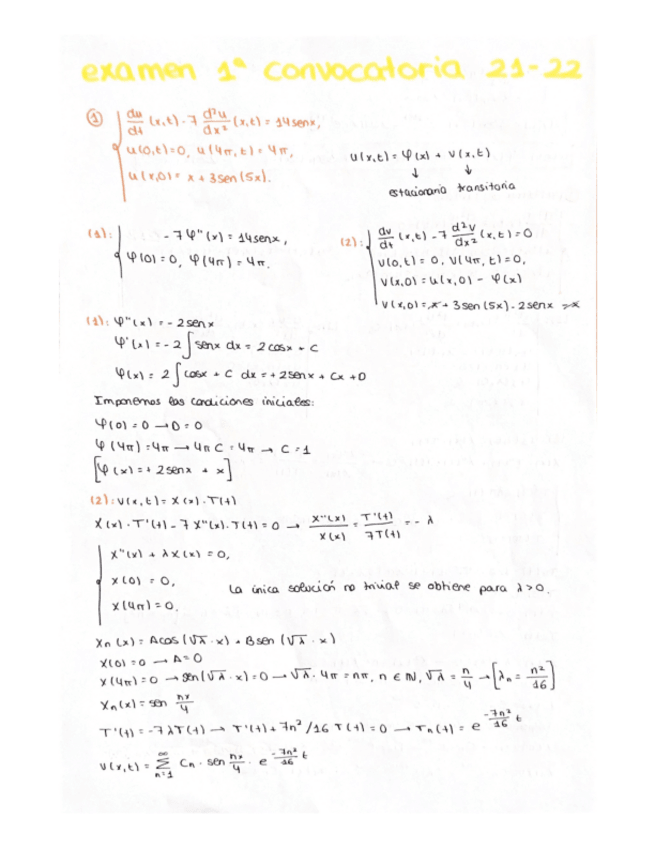 examen 1ª convocatoria 21-22
① du/dt (x,t) - 7 d²u/dx² (x,t) = 14 senx,
u(0,t)=0, u(4π,t)=4π,
u(x,0) = x + 3sen(5x).
u(x,t) = φ(x) + v(x,t)
↓ ↓
estacionaria transitoria
(1): -7φ''(x) = 14senx,
φ(0)=0, φ(4π)=4π.
(2): dv/dt (x,t) - 7 d²v/dx² (x,t) = 0
v(0,t)=0, v(4π,t)=0,
v(x,0) = u(x,0) - φ(x)
v(x,0) = x + 3sen(5x) - 2senx - x
(1): φ''(x) = -2senx
φ'(x) = -2 ∫ senx dx = 2cosx + C
φ(x) = 2 ∫ cosx + C dx = +2senx + Cx + D
Imponemos las condiciones iniciales:
φ(0)=0 → D=0
φ(4π)=4π → 4πC = 4π → C=1
[φ(x) = +2senx + x]
(2): v(x,t) = X(x)·T(t)
X(x)·T'(t) - 7X''(x)·T(t) = 0 → X''(x)/X(x) = T'(t)/7T(t) = -λ
X''(x) + λX(x) = 0,
X(0) = 0,
X(4π) = 0.
La única solución no trivial se obtiene para λ>0.
Xn(x) = Acos(√λ·x) + Bsen(√λ·x)
X(0)=0 → A=0
X(4π)=0 → sen(√λ·x)=0 → √λ·4π = nπ, n∈ℕ, √λ = n/4 → [λn = n²/16]
Xn(x) = sen nx/4
T'(t) = -7λT(t) → T'(t) + 7n²/16 T(t) = 0 → Tn(t) = e^(-7n²/16 t)
v(x,t) = ∑_(n=1)^∞ Cn · sen nx/4 · e^(-7n²/16 t)